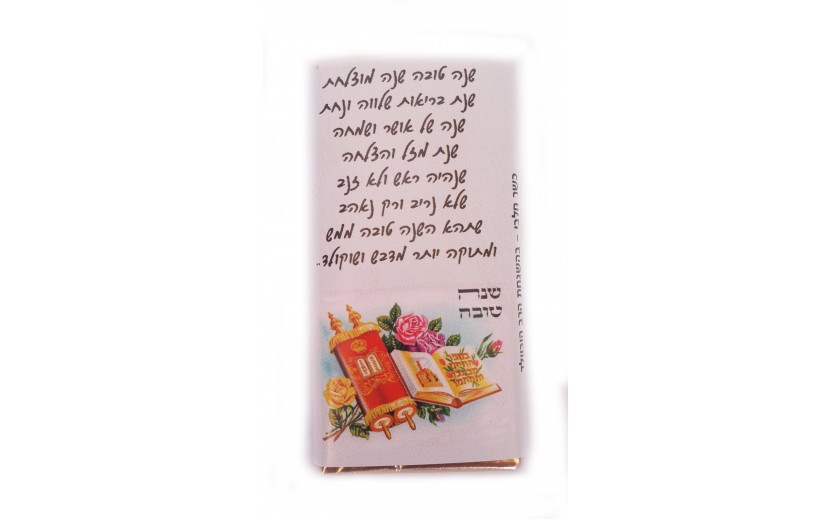 שנה טובה שנה מוצלחת
שנת בריאות שלווה ונחת
שנה של אושר ושמחה
שנת מזל והצלחה
שנהיה ראש ולא זנב
שלא נריב ורק נאהב
שתהא השנה טובה ממש
ומתוקה יותר מדבש ושוקולד..
שנה
טובה
כשר חלבי - בהשגחת הרב